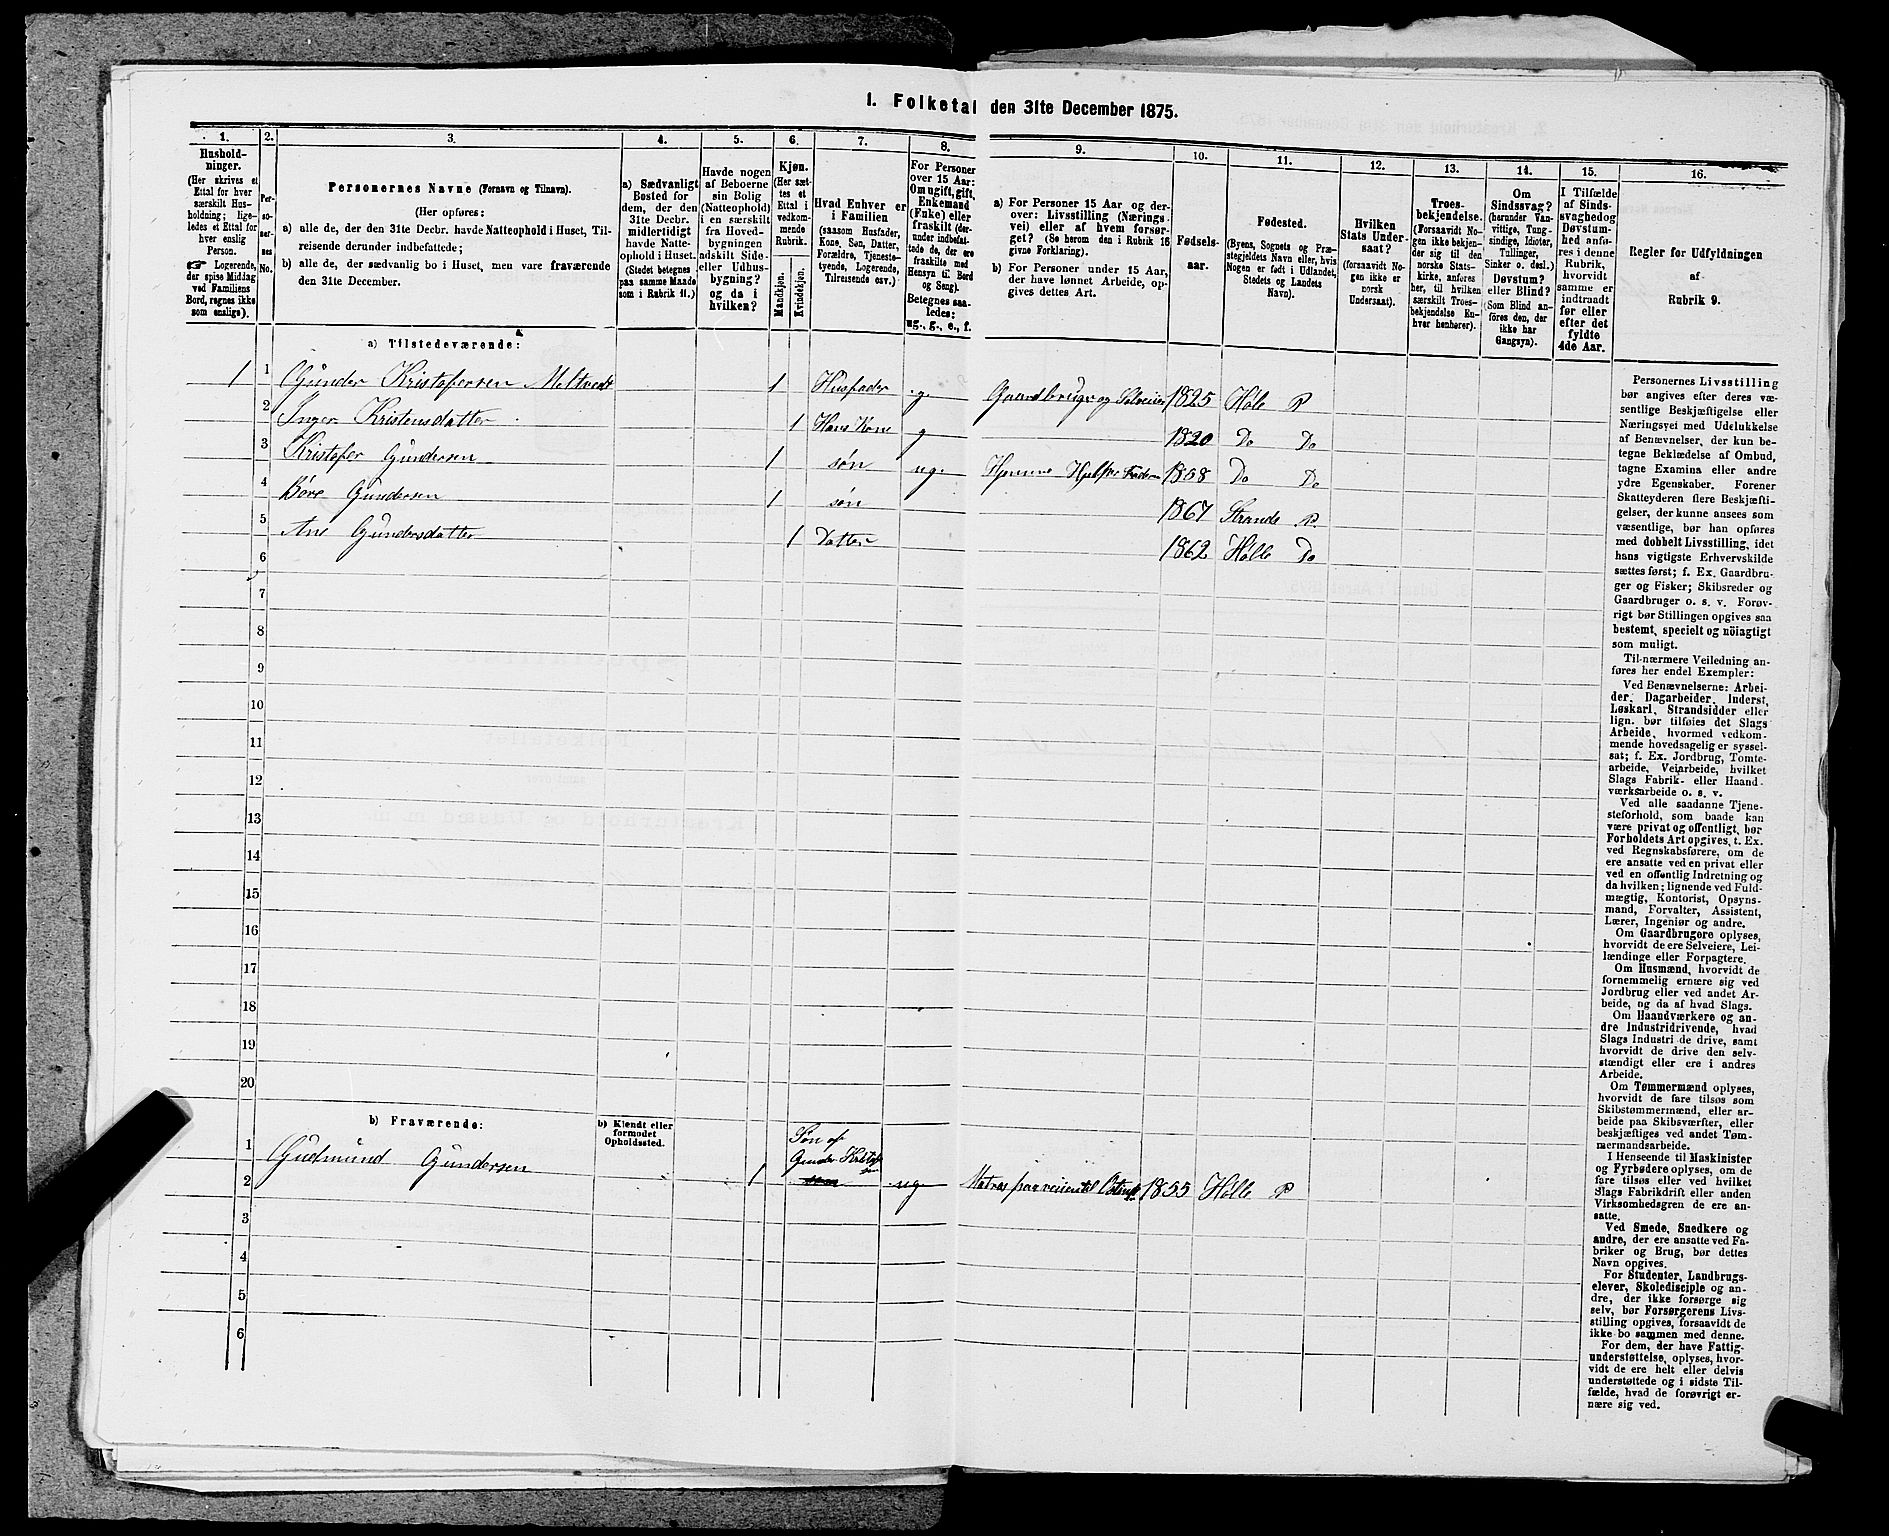 1. Folketal den 31te December 1875.
1.
2.
3.
4.
5.
6.
7.
8.
9.
10.
11.
12.
13.
14.
15.
16.
Hushold-
ninger.
(Her skrives et
Ettal for hver
særskilt Hus-
holdning; lige-
ledes et Ettal for
hver enslig
Person.
☞ Logerende,
der spise Middag
ved Familiens
Bord, regnes ikke
som enslige).
Per-
so-
ner-
nes
No.
Personernes Navne (Fornavn og Tilnavn).
(Her opføres:
a) alle de, der den 31te Decbr. havde Natteophold i Huset, Til-
reisende derunder indbefattede;
b) alle de, der sædvanlig bo i Huset, men vare fraværende
den 31te December.
a) Sædvanligt
Bosted for
dem, der den
31te Decbr.
midlertidigt
havde Natte-
ophold i Huset.
(Stedet betegnes
paa samme Maade
som i Rubrik 11.)
Havde nogen
af Beboerne
sin Bolig
(Natteophold)
i en særskilt
fra Hoved-
bygningen
adskilt Side-
eller Udhus-
bygning?
og da i
hvilken?
Kjøn.
(Her sæt-
tes et
Ettal i
vedkom-
mende
Rubrik.
Mandkjøn.
Kvindekjøn.
Hvad Enhver er
i Familien
(saasom Husfader,
Kone, Søn, Datter,
Forældre, Tjeneste-
tyende, Logerende,
Tilreisende osv.)
For Personer
over 15 Aar:
Om ugift, gift,
Enkemand
(Enke) eller
fraskilt (der-
under indbefat-
tede de, der ere
fraskilte med
Hensyn til Bord
og Seng).
Betegnes saa-
ledes:
ug., g., e., f.
a) For Personer 15 Aar og der-
over: Livsstilling (Nærings-
vei) eller af hvem forsør-
get? (Se herom den i Rubrik 16
givne Forklaring).
b) For Personer under 15 Aar,
der have lønnet Arbeide, op-
gives dettes Art.
Fødsels-
aar.
Fødested.
(Byens, Sognets og Præ-
stegjeldets Navn eller, hvis
Nogen er født i Udlandet,
Stedets og Landets
Navn).
Hvilken
Stats Under-
saat?
(forsaavidt No-
gen ikke er
norsk
Undersaat).
Troes-
bekjendelse.
(Forsaavidt No-
gen ikke bekjen-
der sig til den
norske Stats-
kirke, anføres
her, til hvilken
særskilt Troes-
bekjendelse En-
hver henhører).
Om
Sindssvag?
(herunder Van-
vittige, Tung-
sindige, Idioter,
Tullinger,
Sinker o. desl.)
Døvstum?
eller Blind?
(Som Blind an-
føres den, der
ikke har
Gangsyn).
I Tilfælde
af Sinds-
svaghed og
Døvstum-
hed anfø-
res i denne
Rubrik,
hvorvidt
samme er
indtraadt
før eller
efter det
fyldte
4de Aar.
Regler for Udfyldningen
af
Rubrik 9.
a) Tilstedeværende:
1 1 Gunder Kristofersen Meltvedt 1 Husfader g. Gaardbruger og Selveier 1825 Hole P
2 Inger Kristensdatter 1 Hans Kone g 1820 Do Do
3 Kristofer Gundersen 1 søn ug. Hjemme Hjelper Faderen 1858 Do Do
4 Børe Gundersen 1 søn 1867 Strande P.
5 Ane Gundersdatter 1 Datter 1862 Hølle Do
6
7
8
9
10
11
12
13
14
15
16
17
18
19
20
b) Fraværende:
b) Kjendt eller
formodet
Opholdssted.
Søn af
Gunder Kristof
sen
1 Gudmund Gundersen 1 ug. Matros paa reise til 1855 Hølle P
2
3
4
5
6
Personernes Livsstilling
bør angives efter deres væ-
sentlige Beskjæftigelse eller
Næringsvei med Udelukkelse
af Benævnelser, der kun be-
tegne Beklædelse af Ombud,
tagne Examina eller andre
ydre Egenskaber. Forener
Skatteyderen flere Beskjæfti-
gelser, der kunne ansees som
væsentlige, bør han opføres
med dobbelt Livsstilling, idet
hans vigtigste Erhvervskilde
sættes først; f. Ex. Gaardbru-
ger og Fisker; Skibsreder og
Gaardbruger o. s. v. Forøv-
rigt bør Stillingen opgives saa
bestemt, specielt og nöiagtigt
som muligt.
Til nærmere Veiledning an-
føres her endel Exempler:
Ved Benævnelserne: Arbei-
der, Dagarbeider, Inderst,
Løskarl, Strandsidder eller
lign. bør tilføies det Slags
Arbeide, hvormed vedkom-
mende hovedsagelig er syssel-
sat; f. Ex. Jordbrug, Tomte-
arbeide, Veiarbeide, hvilket
Slags Fabrik- eller Haand-
værksarbeide o. s. v.
Ved alle saadanne Tjene-
steforhold, som baade kan
være privat og offentligt, bør
Forholdets Art opgives, t. Ex.
ved Regnskabsførere, om de
ere ansatte ved en privat eller
ved en offentlig Indretning og
da hvilken; lignende ved Fuld-
mægtig, Kontorist, Opsyns-
mand, Forvalter, Assistent,
Lærer, Ingeniør og andre.
Om Gaardbrugere oplyses,
hvorvidt de ere Selveiere, Lei-
lændinge eller Forpagtere.
Om Husmænd, hvorvidt de
fornemmelig ernære sig ved
Jordbrug eller ved andet Ar-
beide, og da af hvad Slags.
Om Haandværkere og an-
dre Industridrivende, hvad
Slags Industri de drive, samt
hvorvidt de drive den selv-
stændigt eller ere i andres
Arbeide.
Om Tømmermænd oplyses,
hvorvidt de fare tilsøs som
Skibstømmermænd, eller ar-
beide paa Skibsværfter, eller
beskjæftiges ved andet Tøm-
mermandsarbeide.
I Henseende til Maskinister
og Fyrbødere oplyses, om de
fare tilsøs eller ved hvilket
Slags Fabrikdrift eller anden
Virksomhedsgren de ere an-
satte.
Ved Smede, Snedkere og
andre, der ere ansatte ved Fa-
briker og Brug, bør dettes
Navn opgives.
For Studenter, Landbrugs-
elever, Skoledisciple og an-
dre, der ikke forsørge sig
selv, bør Forsørgerens Livs-
stilling opgives, forsaavidt de
ikke bo sammen med denne.
For dem, der have Fattig-
understøttelse, oplyses, hvor-
vidt de ere helt eller delvis
understøttede og i sidste Til-
fælde, hvad de forøvrigt er-
nære sig ved.